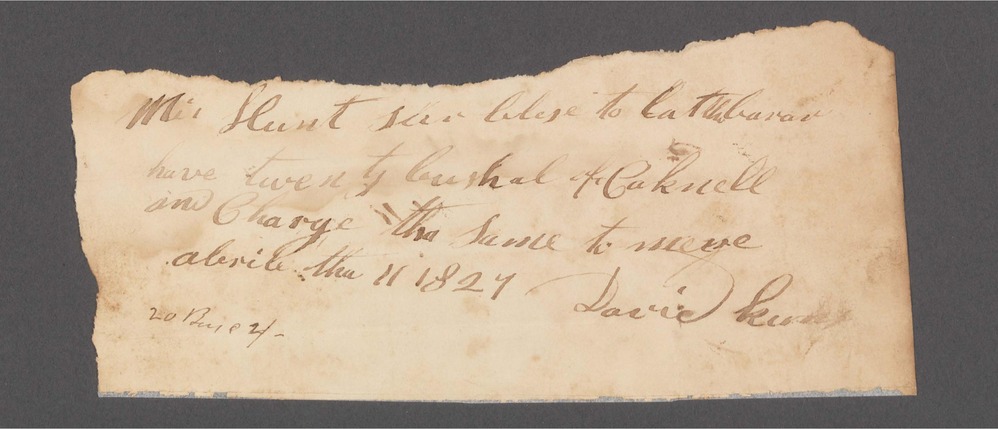 Mis Hunt Sur blese to let the barar
have twenty bushal of Coknell
and Charge the Same to mege
abrile tha 11 1827 David
20 Bus